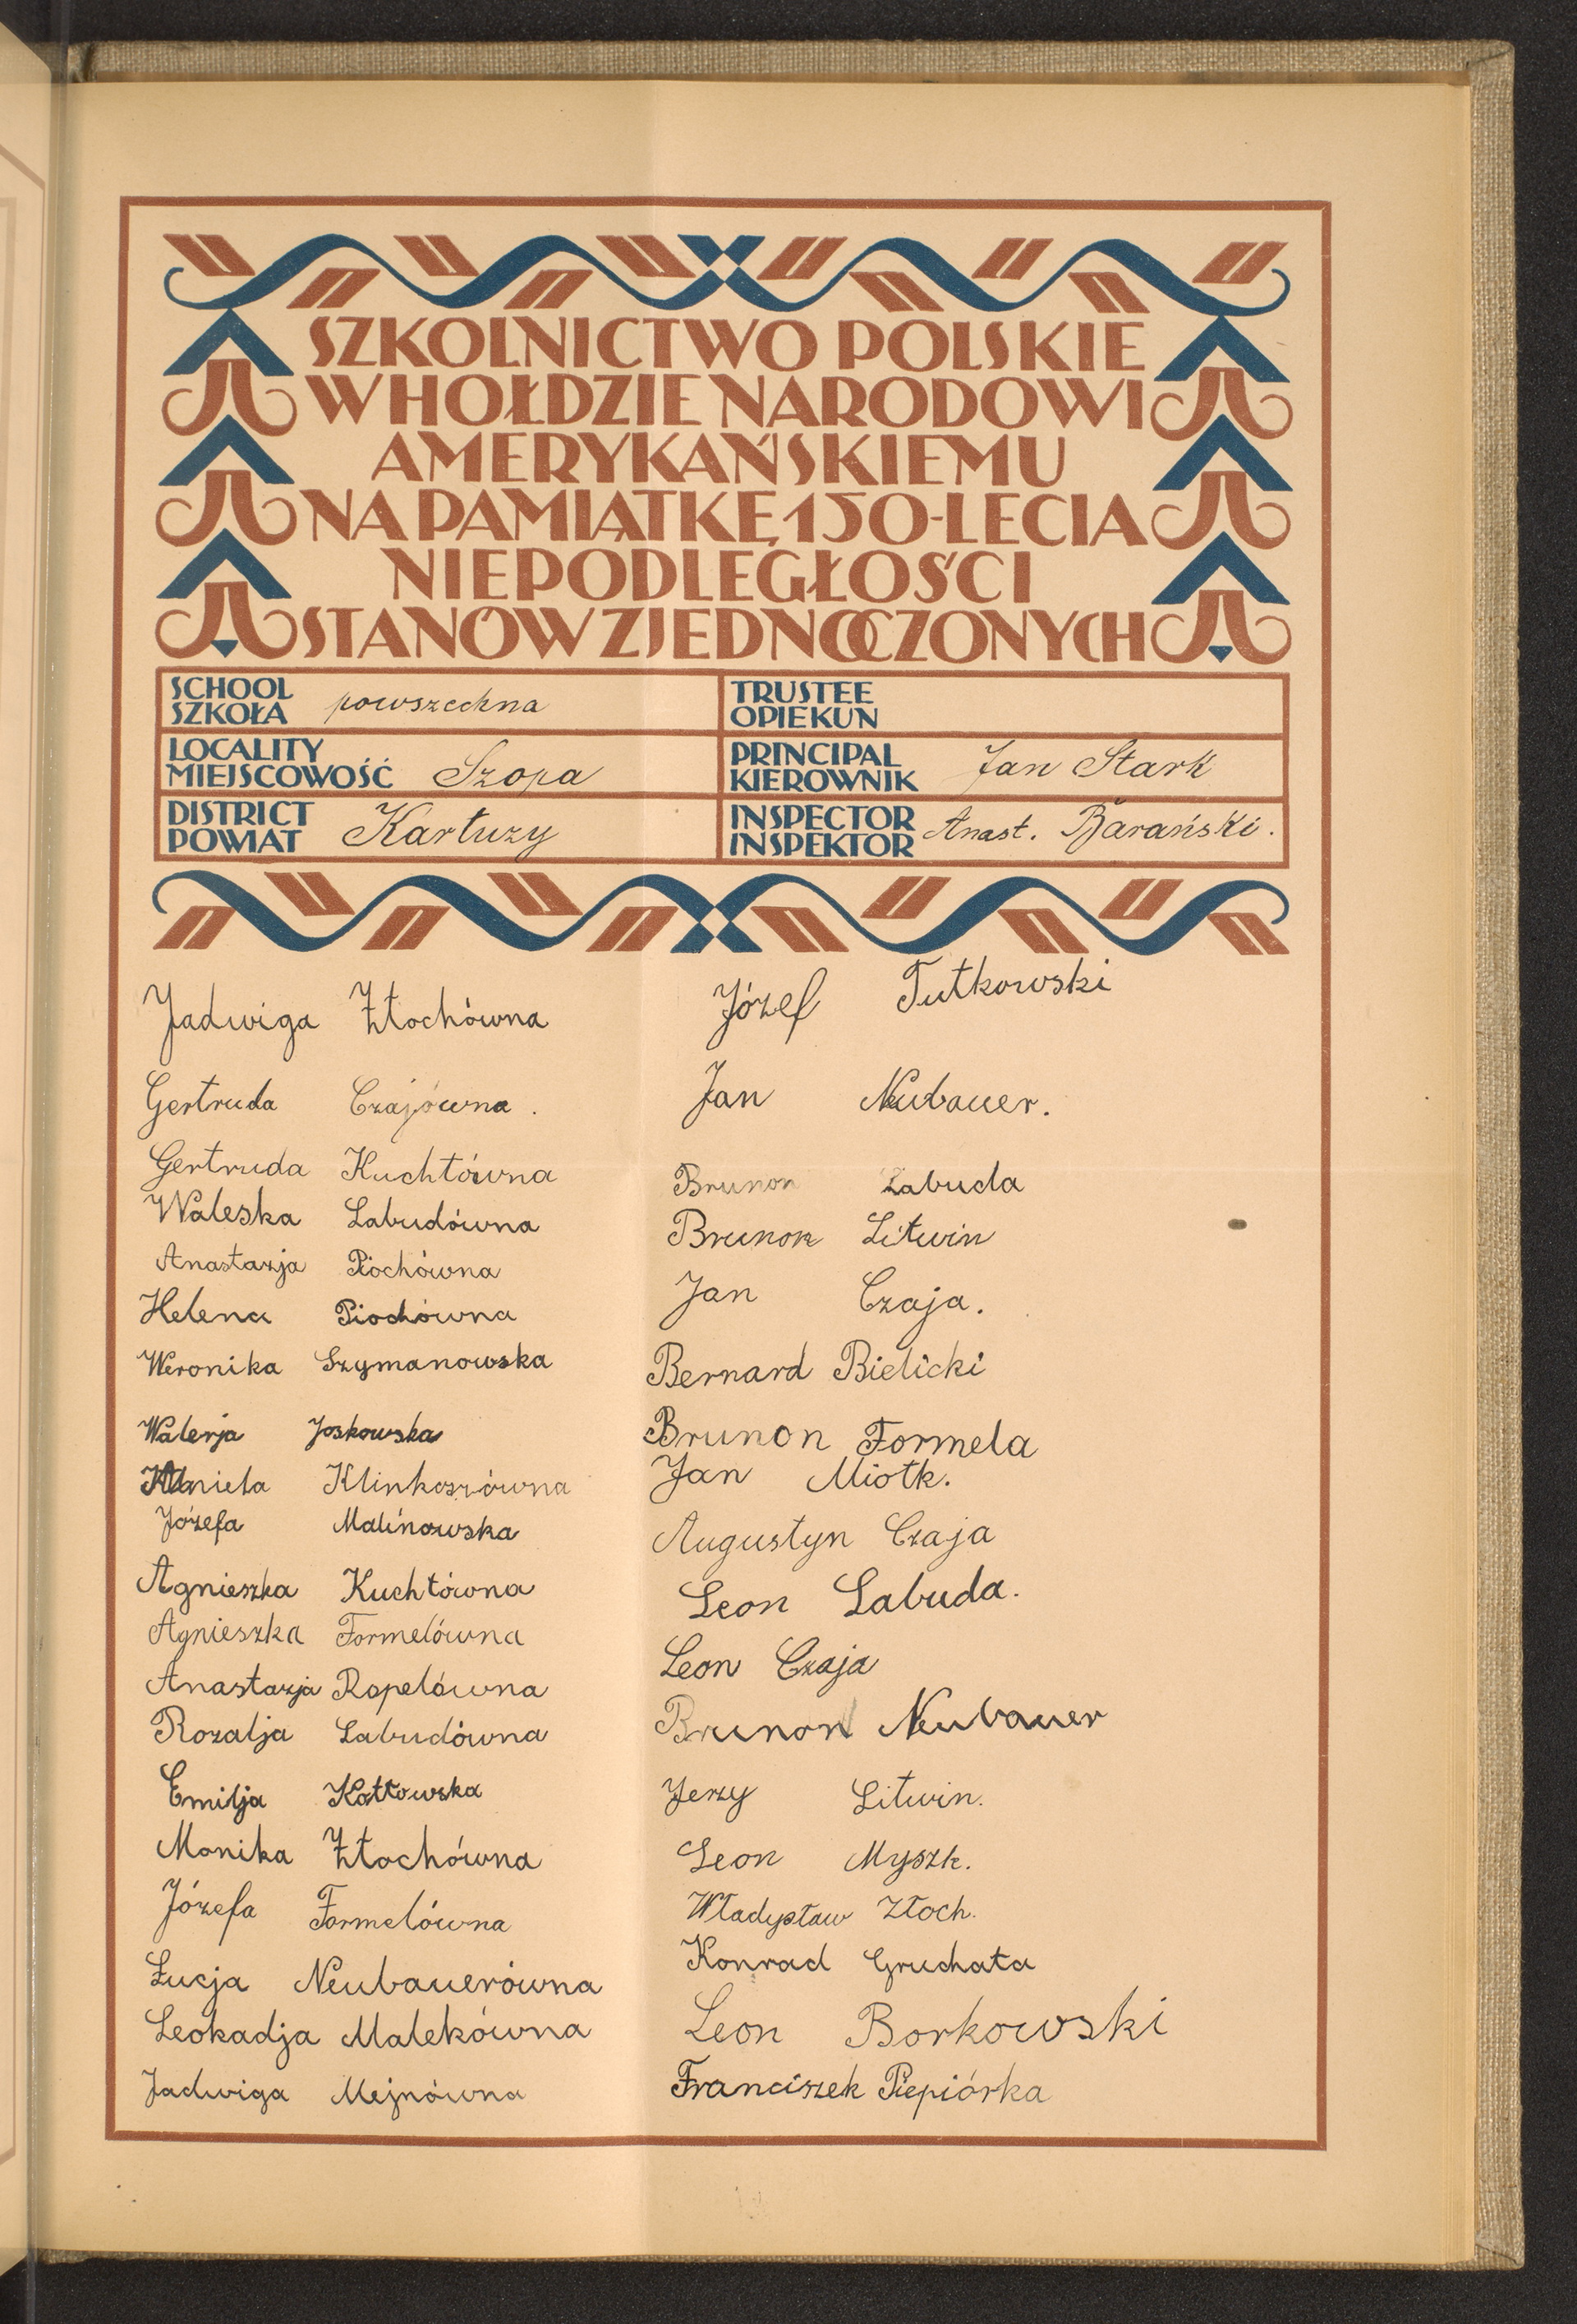 SZKOLNICTWO POLSKIE
W HOŁDZIE NARODOWI
AMERYKAŃSKIEMU
NA PAMIĄTKĘ 150-LECIA
NIEPODLEGŁOŚCI
STANÓW ZJEDNOCZONYCH
SCHOOL
SZKOŁA powszechna
TRUSTEE
OPIEKUN
LOCALITY
MIEJSCOWOŚĆ Szopa
PRINCIPAL
KIEROWNIK Jan Stark
DISTRICT
POWIAT Kartuzy
INSPECTOR
INSPEKTOR Anast. Barański.
Jadwiga Złochówna
Gertruda Czajówna.
Gertruda Kuchtówna
Waleska Labudówna
Anastazja Piochówna
Helena Piochówna
Weronika Szymanowska
Walerja Joskowska
Aniela Klinkoszówna
Józefa Malinowska
Agnieszka Kuchtówna
Agnieszka Formelówna
Anastazja Ropelówna
Rozalja Labudówna
Emilja Kottowska
Monika Złochówna
Józefa Formelówna
Łucja Neubauerówna
Leokadja Malekówna
Jadwiga Mejnówna
Józef Tutkowski
Jan Neubauer.
Brunon Labuda
Brunon Litwin
Jan Czaja.
Bernard Bielicki
Brunon Formela
Jan Miotk.
Augustyn Czaja
Leon Labuda.
Leon Czaja
Brunon Neubauer
Jerzy Litwin.
Leon Myszk.
Władysław Złoch.
Konrad Gruchała
Leon Borkowski
Franciszek Piepiórka